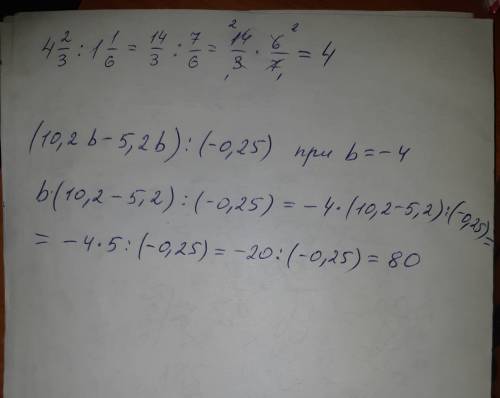 4 2/3 : 1 1/6 = 14/3 : 7/6 = 14/3 · 6/7 = 4
(10,2b - 5,2b) : (-0,25) при b = -4
b·(10,2 - 5,2) : (-0,25) = -4·(10,2 - 5,2) : (-0,25) =
= -4·5 : (-0,25) = -20 : (-0,25) = 80